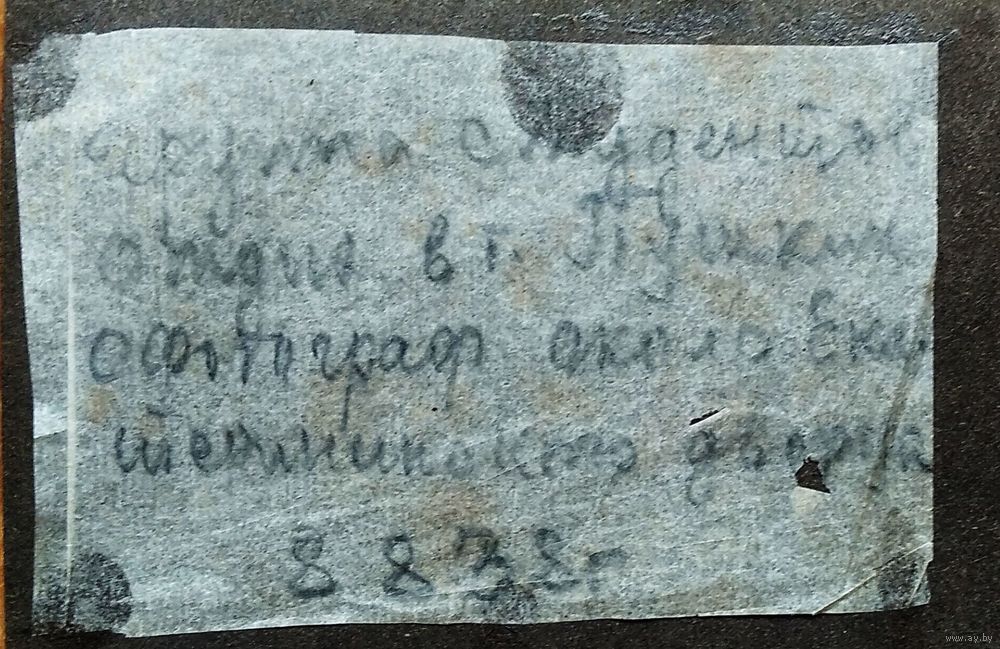 группа студентов
отдых в г. Пушкин
сфотограф около Ека
терининского дворца
8 8 38г
www.ay.by